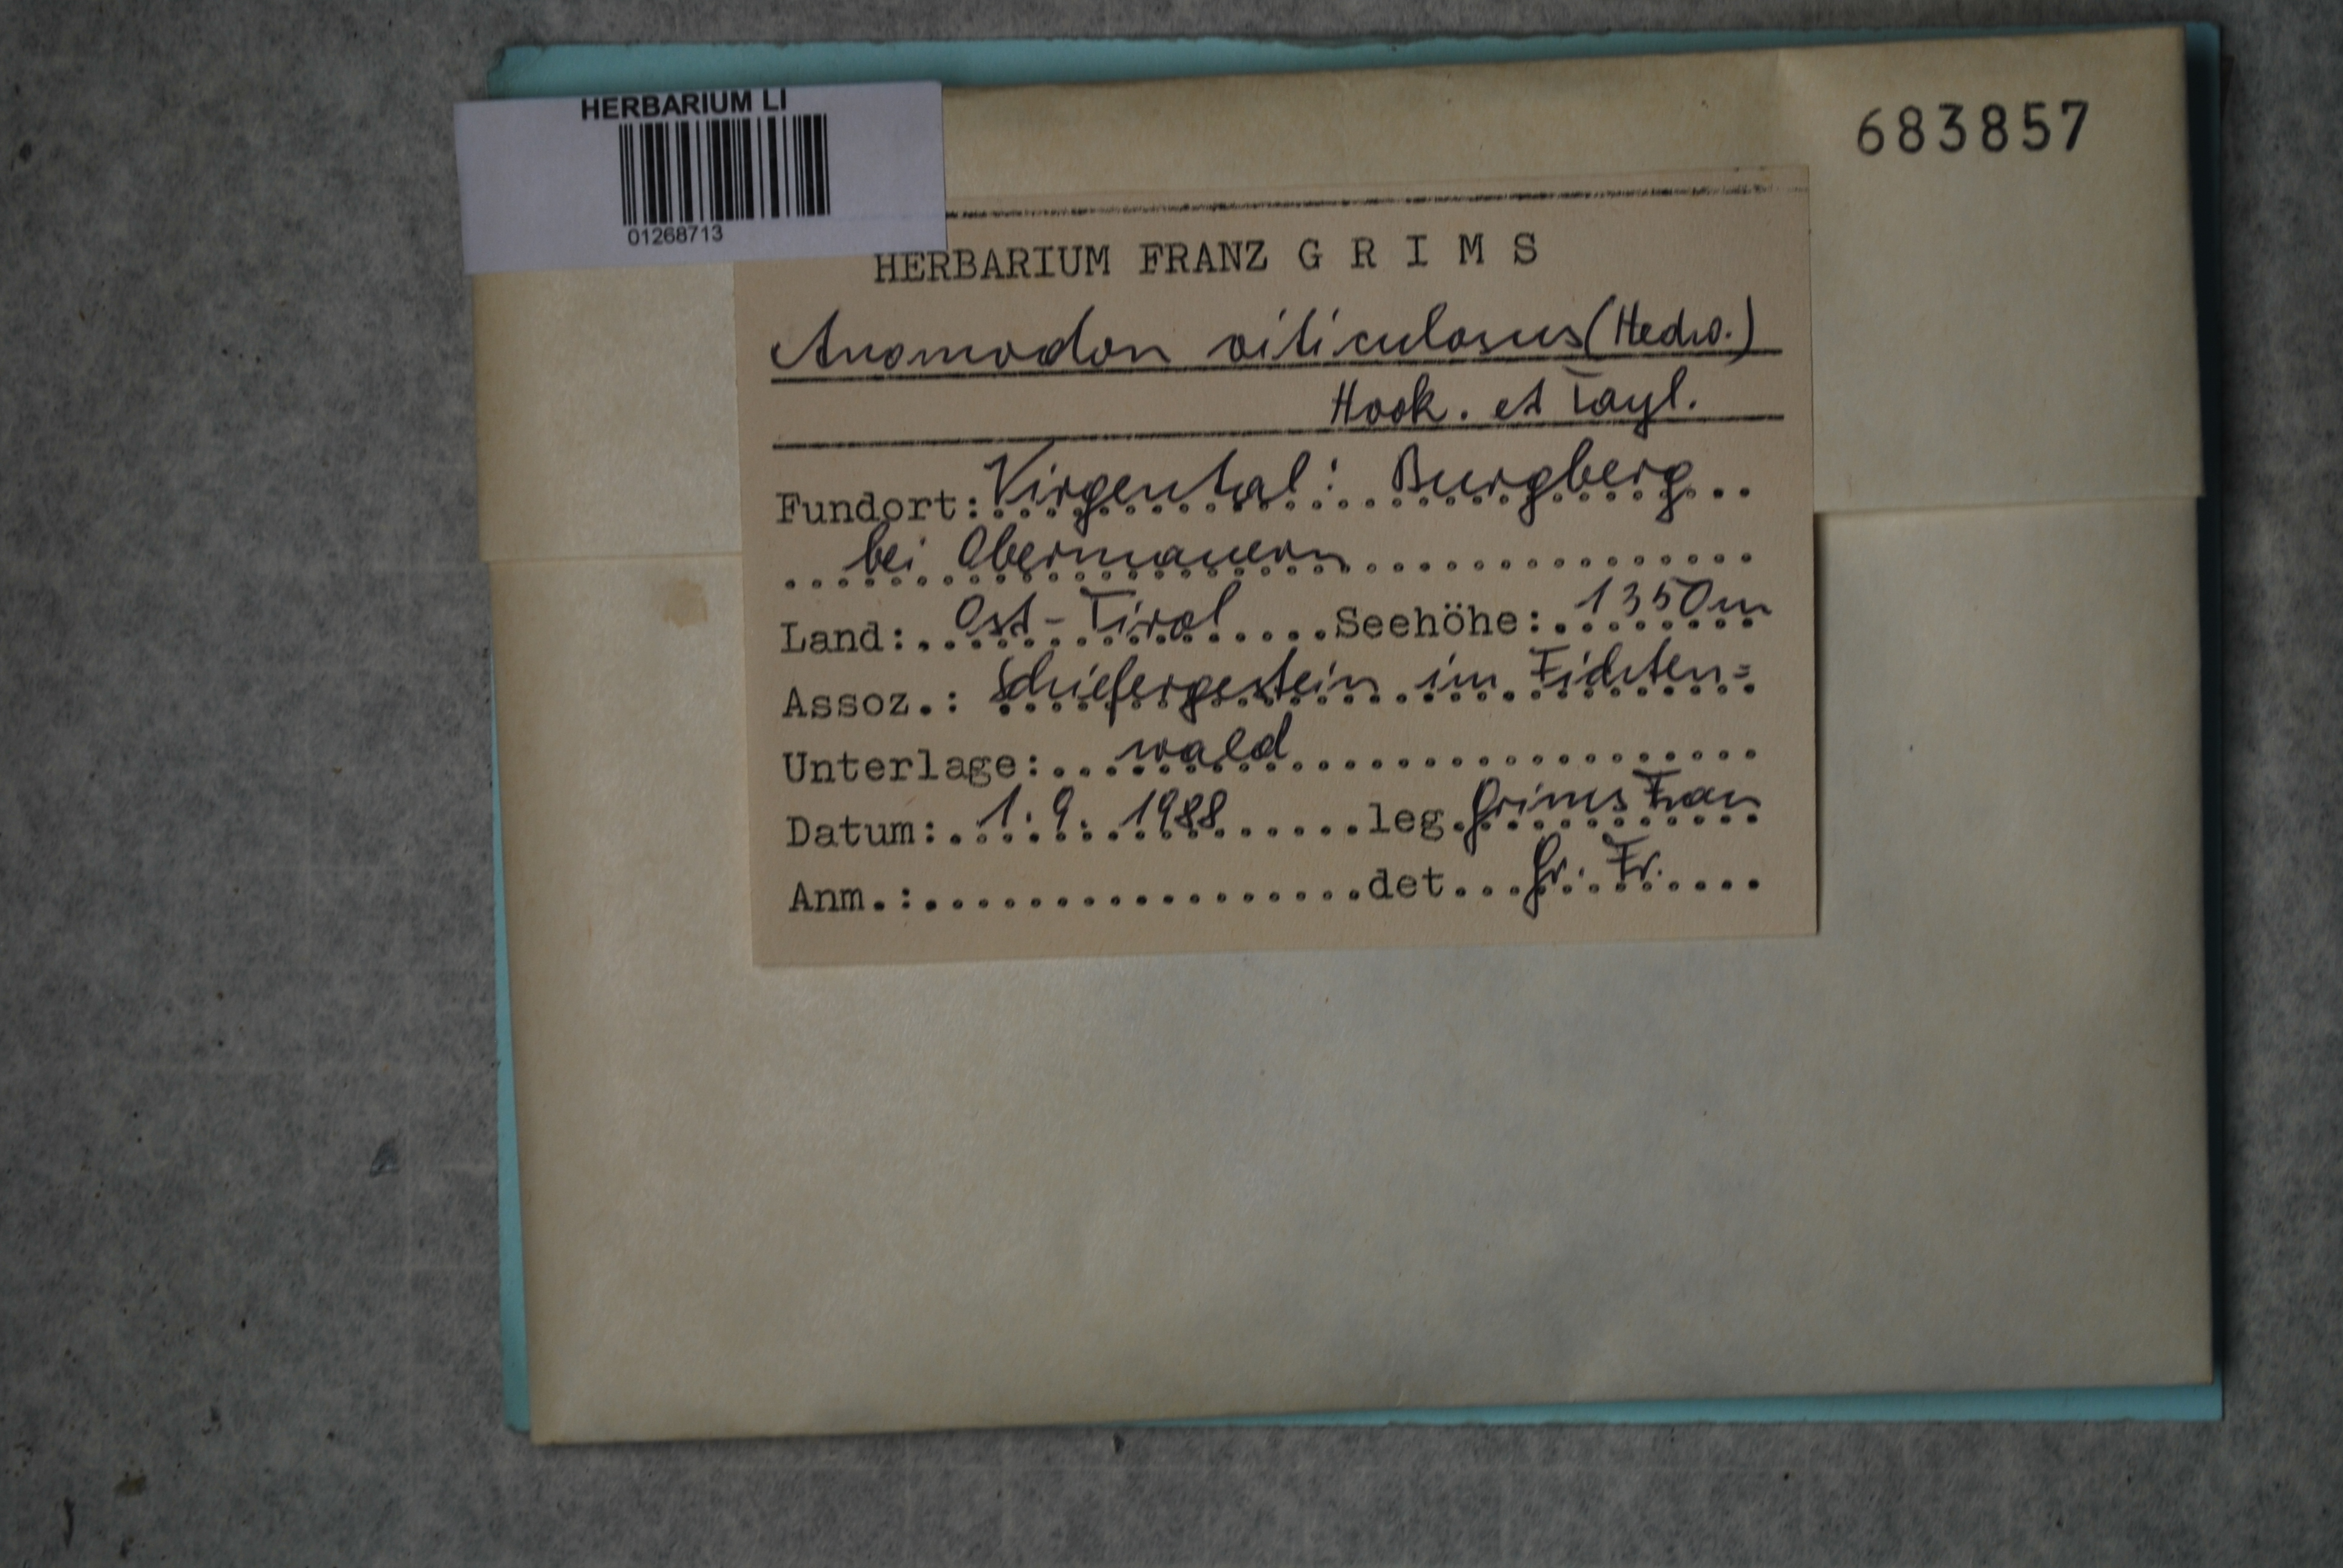 HERBARIUM LI
01268713
683857
HERBARIUM FRANZ G R I M S
Anomodon viticulosus (Hedw.)
Hook. et Tayl.
Fundort: Virgental: Burgberg
bei Obermauern
Land: Ost-Tirol Seehöhe: 1350m
Assoz.: Schiefergestein im Fichten=
Unterlage: wald
Datum: 1.9.1988 leg. Grims Fran
Anm.: det Gr. Fr.